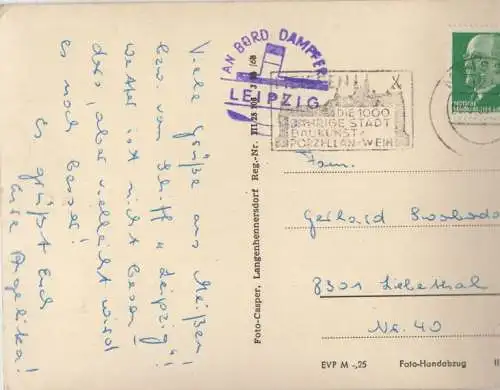 Viele Grüße aus Meißen!
bzw. vom Schiff "Leipzig"!
Wetter ist nicht beson-
ders, aber vielleicht wird
es noch besser!
Es grüßt Euch
Eure Angelika!
Foto-Casper, Langenhennersdorf Reg.-Nr.
AN BORD DAMPFER
LEIPZIG
DIE 1000
JÄHRIGE STADT
BAUKUNST
PORZELLAN · WEIN
Fam.
Gerhard Swoboda
8301 Liebethal
Nr. 40
EVP M -,25 Foto-Handabzug